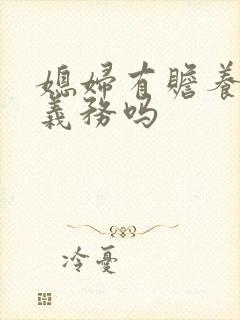 媳婦有贍養
義務嗎
冷憂